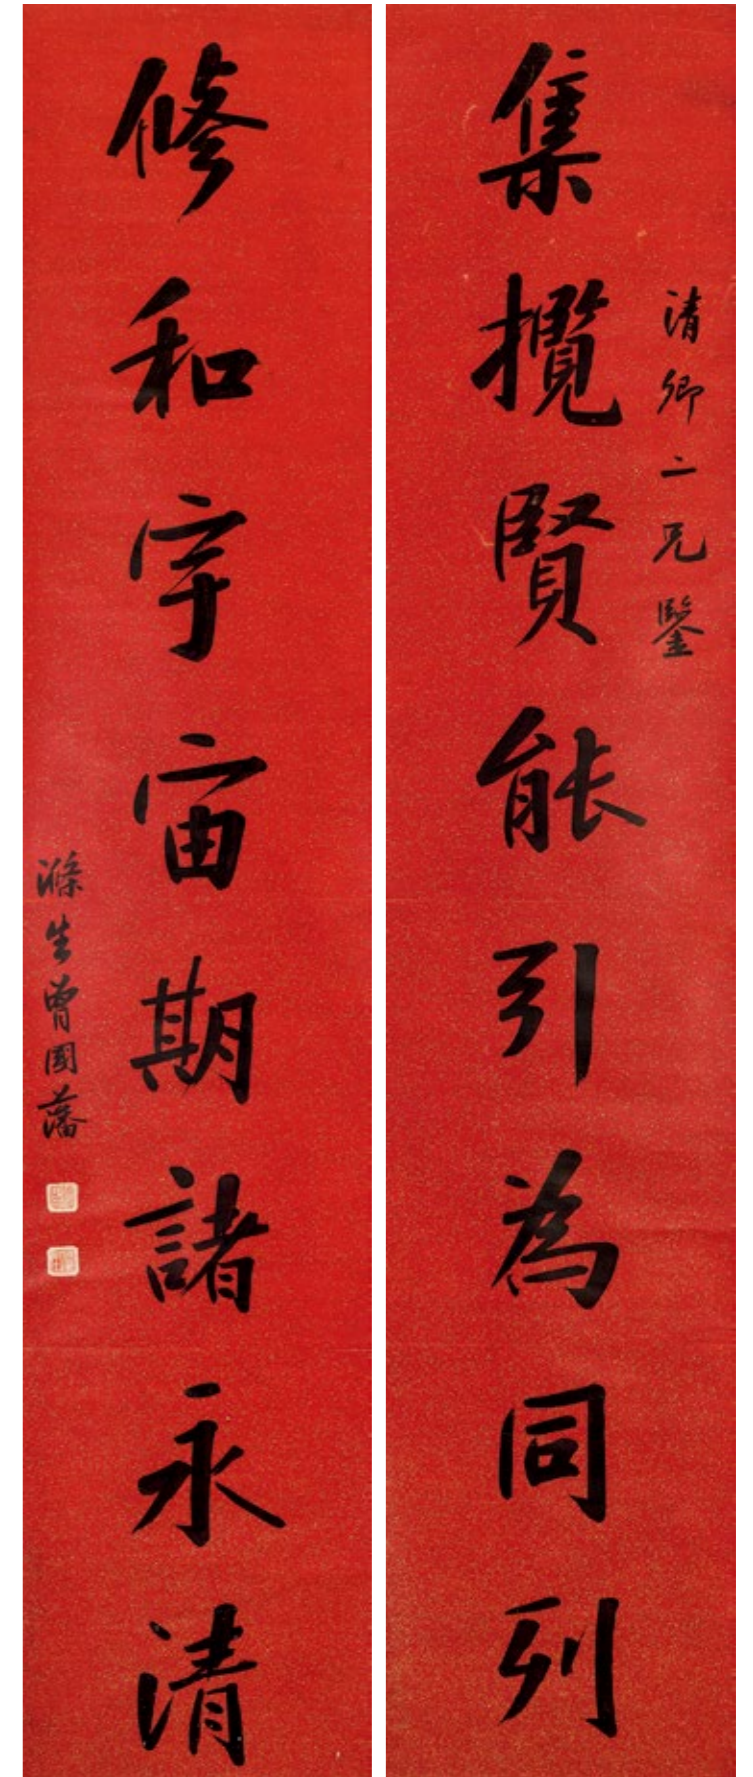 清卿二兄鑒
集攬賢能引為同列
修和宇宙期諸永清
滌生曾國藩